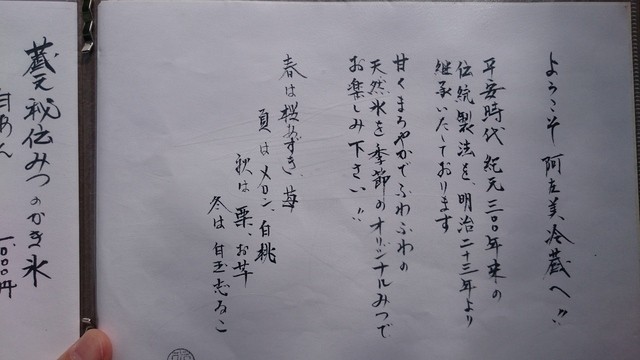 ようこそ 阿左美冷蔵へ!!
平安時代 紀元三〇〇年来の
伝統製法を、明治二十三年より
継承いたしております
甘くまろやかでふわふわの
天然氷を季節のオリジナルみつで
お楽しみ下さい!!
春は桜あずき、苺
夏はメロン、白桃
秋は 栗、お芋
冬は 白玉志るこ
蔵元秘伝みつのかき氷
白あん
1,000円